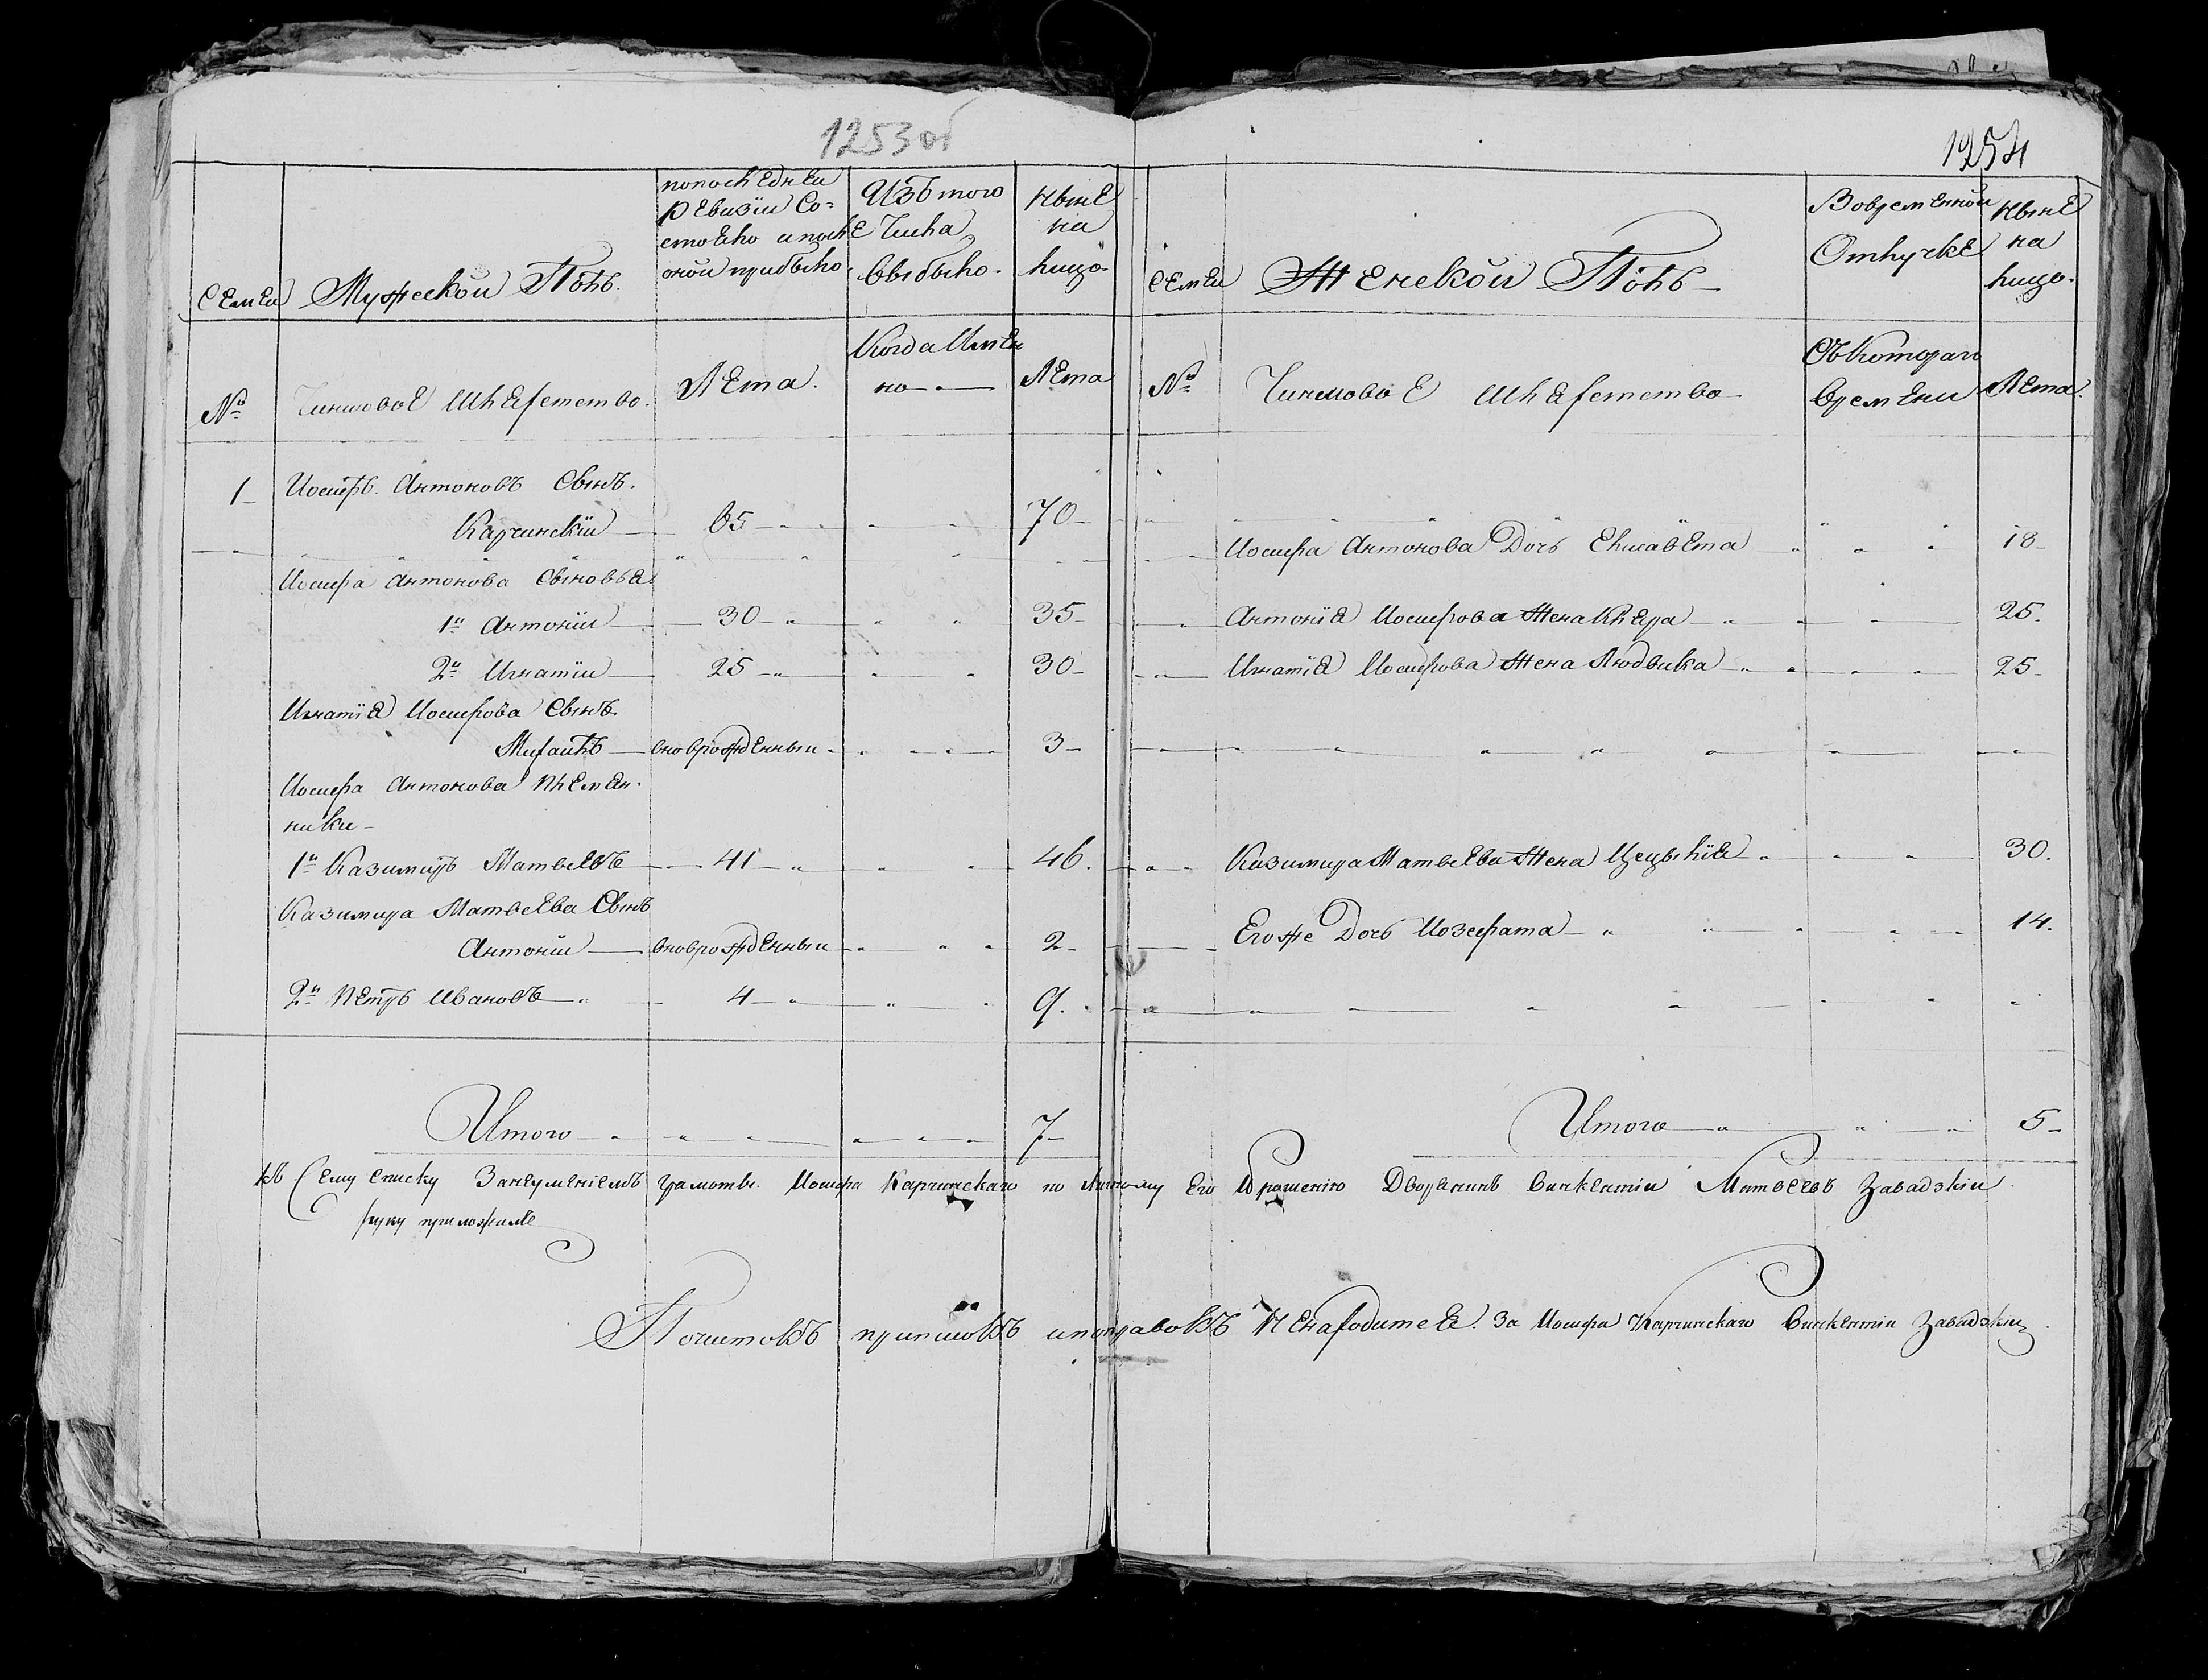 1253об
1254
Семьи
Мужеской Полъ.
попоследней
Ревизіи Со-
стояло и после
оной прибыло
Изъ того
Числа
Выбыло.
Ныне
на
лицо.
Семьи
Женской Полъ
Вовременной
Отлучке
Ныне
на
лицо.
№
Чиншовое Шляхетство.
Лета.
Когда Имен
но
Лета
№
Чиншовое Шляхетство
Съ Котораго
Времени
Лета.
1
Иосифъ Антоновъ Сынъ.
Карчинскій 65 70
Иосифа Антонова Дочь Елисавета 18
Иосифа Антонова Сыновья
1й Антоній 30 35
Антонія Иосифова Жена Клера 25.
2й Игнатій 25 30
Игнатія Иосифова Жена Людвика 25
Игнатія Иосифова Сынъ.
Михаилъ вноврожденный 3
Иосифа Антонова племян-
ники
1й Казимиръ Матвеевъ 41 46.
Казимира Матвеева Жена Цецылія 30.
Казимира Матвеева Сынъ
Антоній вноврожденный 2
Егоже Дочь Иозефата 14.
2й Петръ Ивановъ 4 9.
Итого 7
Итого 5
къ Сему списку Занеуменіемъ грамоты Иосифа Карчинскаго по личному Его Прошенію Дворянинъ Викентій Матвеевъ Завадзкій
руку приложилъ
Почистокъ приписокъ ипоправокъ Ненаходится. За Иосифа Карчинскаго Викентій Завадзкій